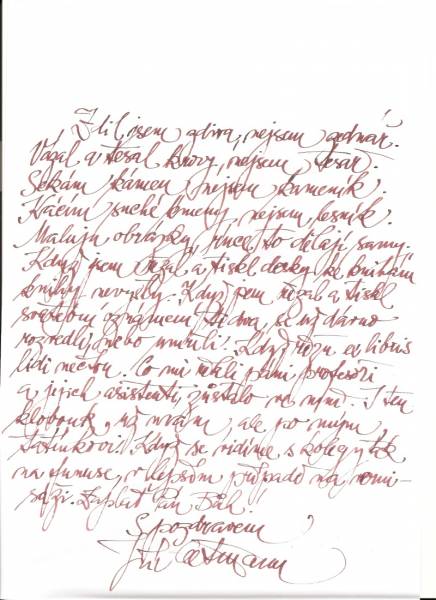 Zdil jsem zdiva, nejsem zedník.
Vázal a tesal krovy, nejsem tesař.
Sekám kámen, nejsem kameník.
Kácím suché kmeny, nejsem lesník.
Maluju obrázky, ruce to dělají samy.
Když jsem řezal a tiskl desky ke knihám
knihy nevyšly. Když jsem řezal a tiskl
svatební oznámení, ti dva, se už dávno
rozvedli, nebo umřeli. Když řežu ex libris
lidi nečtou. Co mi dali páni profesoři
a jejich asistenti, zůstalo ve mně. I ten
klobouk, už nemám, ale po mým,
tatínkovi. Když se vidíme s kolegy tak
na funuse, v lepším případě na verni-
sáži. Zaplať Pán Bůh!
S pozdravem
Jiří